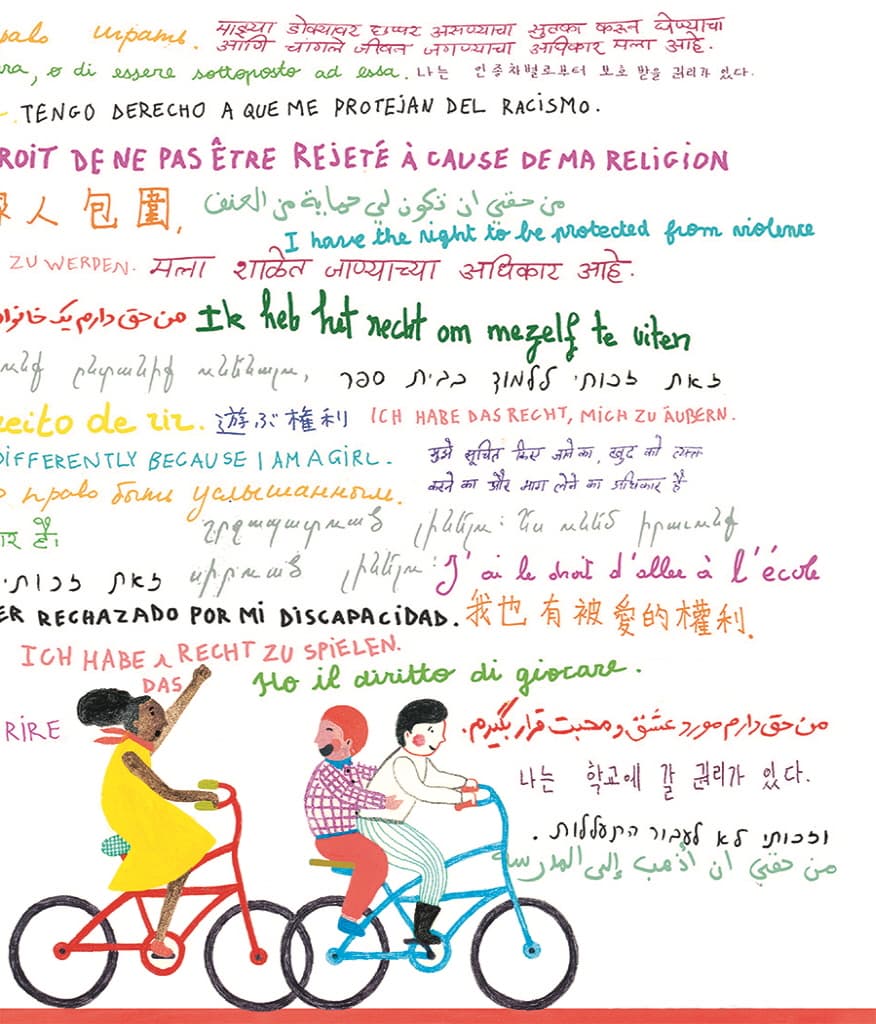 право играть. माझ्या डोक्यावर छप्पर असण्याचा सुतका करून घेण्याचा
आणि चांगले जीवन जगण्याचा अधिकार मला आहे.
ra, o di essere sottoposto ad essa. 나는 인종차별로부터 보호 받을 권리가 있다.
TENGO DERECHO A QUE ME PROTEJAN DEL RACISMO.
ROIT DE NE PAS ÊTRE REJETÉ À CAUSE DE MA RELIGION
人 包 圍, من حقي ان تكون لي حماية من العنف
I have the right to be protected from violence
ZU WERDEN. मला शाळेत जाण्याच्या अधिकार आहे.
من حق دارم یک خانواد Ik heb het recht om mezelf te uiten
זאת זכותי ללמוד בבית ספר
reito de rir. 遊ぶ権利 ICH HABE DAS RECHT, MICH ZU ÄUẞERN.
DIFFERENTLY BECAUSE I AM A GIRL. मुझे सूचित किए जाने का, खुद को व्यक्त
करने का और भाग लेने का अधिकार है
о право быть услышанным.
ार है।
זאת זכותי J'ai le droit d'aller à l'école
ER RECHAZADO POR MI DISCAPACIDAD. 我也有被愛的權利.
ICH HABE DAS RECHT ZU SPIELEN.
Ho il diritto di giocare.
RIRE من حق دارم مورد عشق و محبت قرار بگیرم.
나는 학교에 갈 권리가 있다.
וזכותי לא לעבור התעללות.
من حقي ان أذهب إلى المدرسة